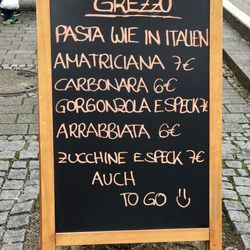 GREZZO
PASTA WIE IN ITALIEN
AMATRICIANA 7€
CARBONARA 6€
GORGONZOLA E SPECK 7€
ARRABBIATA 6€
ZUCCHINE E SPECK 7€
AUCH
TO GO